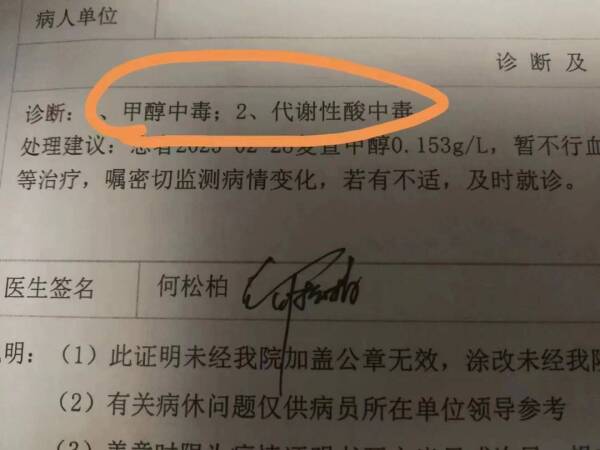 病人单位
诊 断 及
诊断: 、甲醇中毒；2、代谢性酸中毒
处理建议：患者2025-02-28复查甲醇0.153g/L，暂不行血
等治疗，嘱密切监测病情变化，若有不适，及时就诊。
医生签名 何松柏
明：（1）此证明未经我院加盖公章无效，涂改未经我院
（2）有关病休问题仅供病员所在单位领导参考